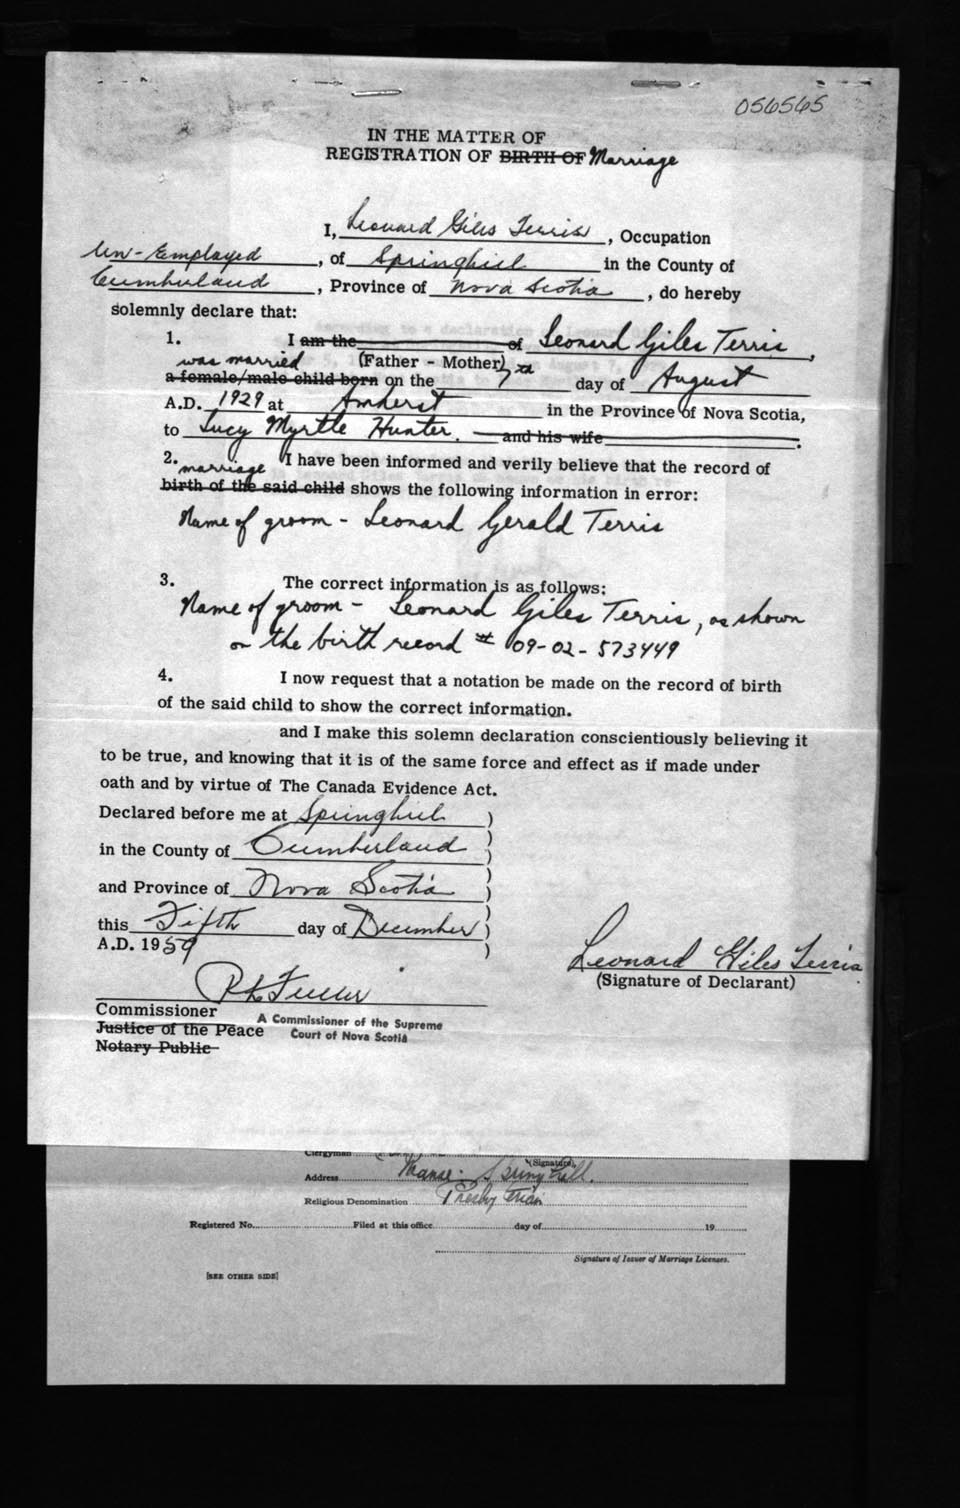 056565
IN THE MATTER OF
REGISTRATION OF BIRTH OF Marriage
I, Leonard Giles Terris, Occupation
Un-Employed, of Springhill in the County of
Cumberland, Province of Nova Scotia, do hereby
solemnly declare that:
1. I am the of Leonard Giles Terris,
was married (Father - Mother)
a female/male child born on the 7th day of August
A.D. 1929 at Amherst in the Province of Nova Scotia,
to Lucy Myrtle Hunter. and his wife.
2. I have been informed and verily believe that the record of
marriage
birth of the said child shows the following information in error:
Name of groom - Leonard Gerald Terris
3. The correct information is as follows:
Name of groom - Leonard Giles Terris, as shown
on the birth record # 09-02-573449
4. I now request that a notation be made on the record of birth
of the said child to show the correct information.
and I make this solemn declaration conscientiously believing it
to be true, and knowing that it is of the same force and effect as if made under
oath and by virtue of The Canada Evidence Act.
Declared before me at Springhill )
in the County of Cumberland )
and Province of Nova Scotia )
this Fifth day of December )
A.D. 1959 )
Leonard Giles Terris
(Signature of Declarant)
Commissioner
A Commissioner of the Supreme
Justice of the Peace
Court of Nova Scotia
Notary Public
Clergyman
(Signature)
Address Manse. Spring Hill.
Religious Denomination Presbyterian
Registered No. Filed at this office day of 19
Signature of Issuer of Marriage Licenses.
[SEE OTHER SIDE]